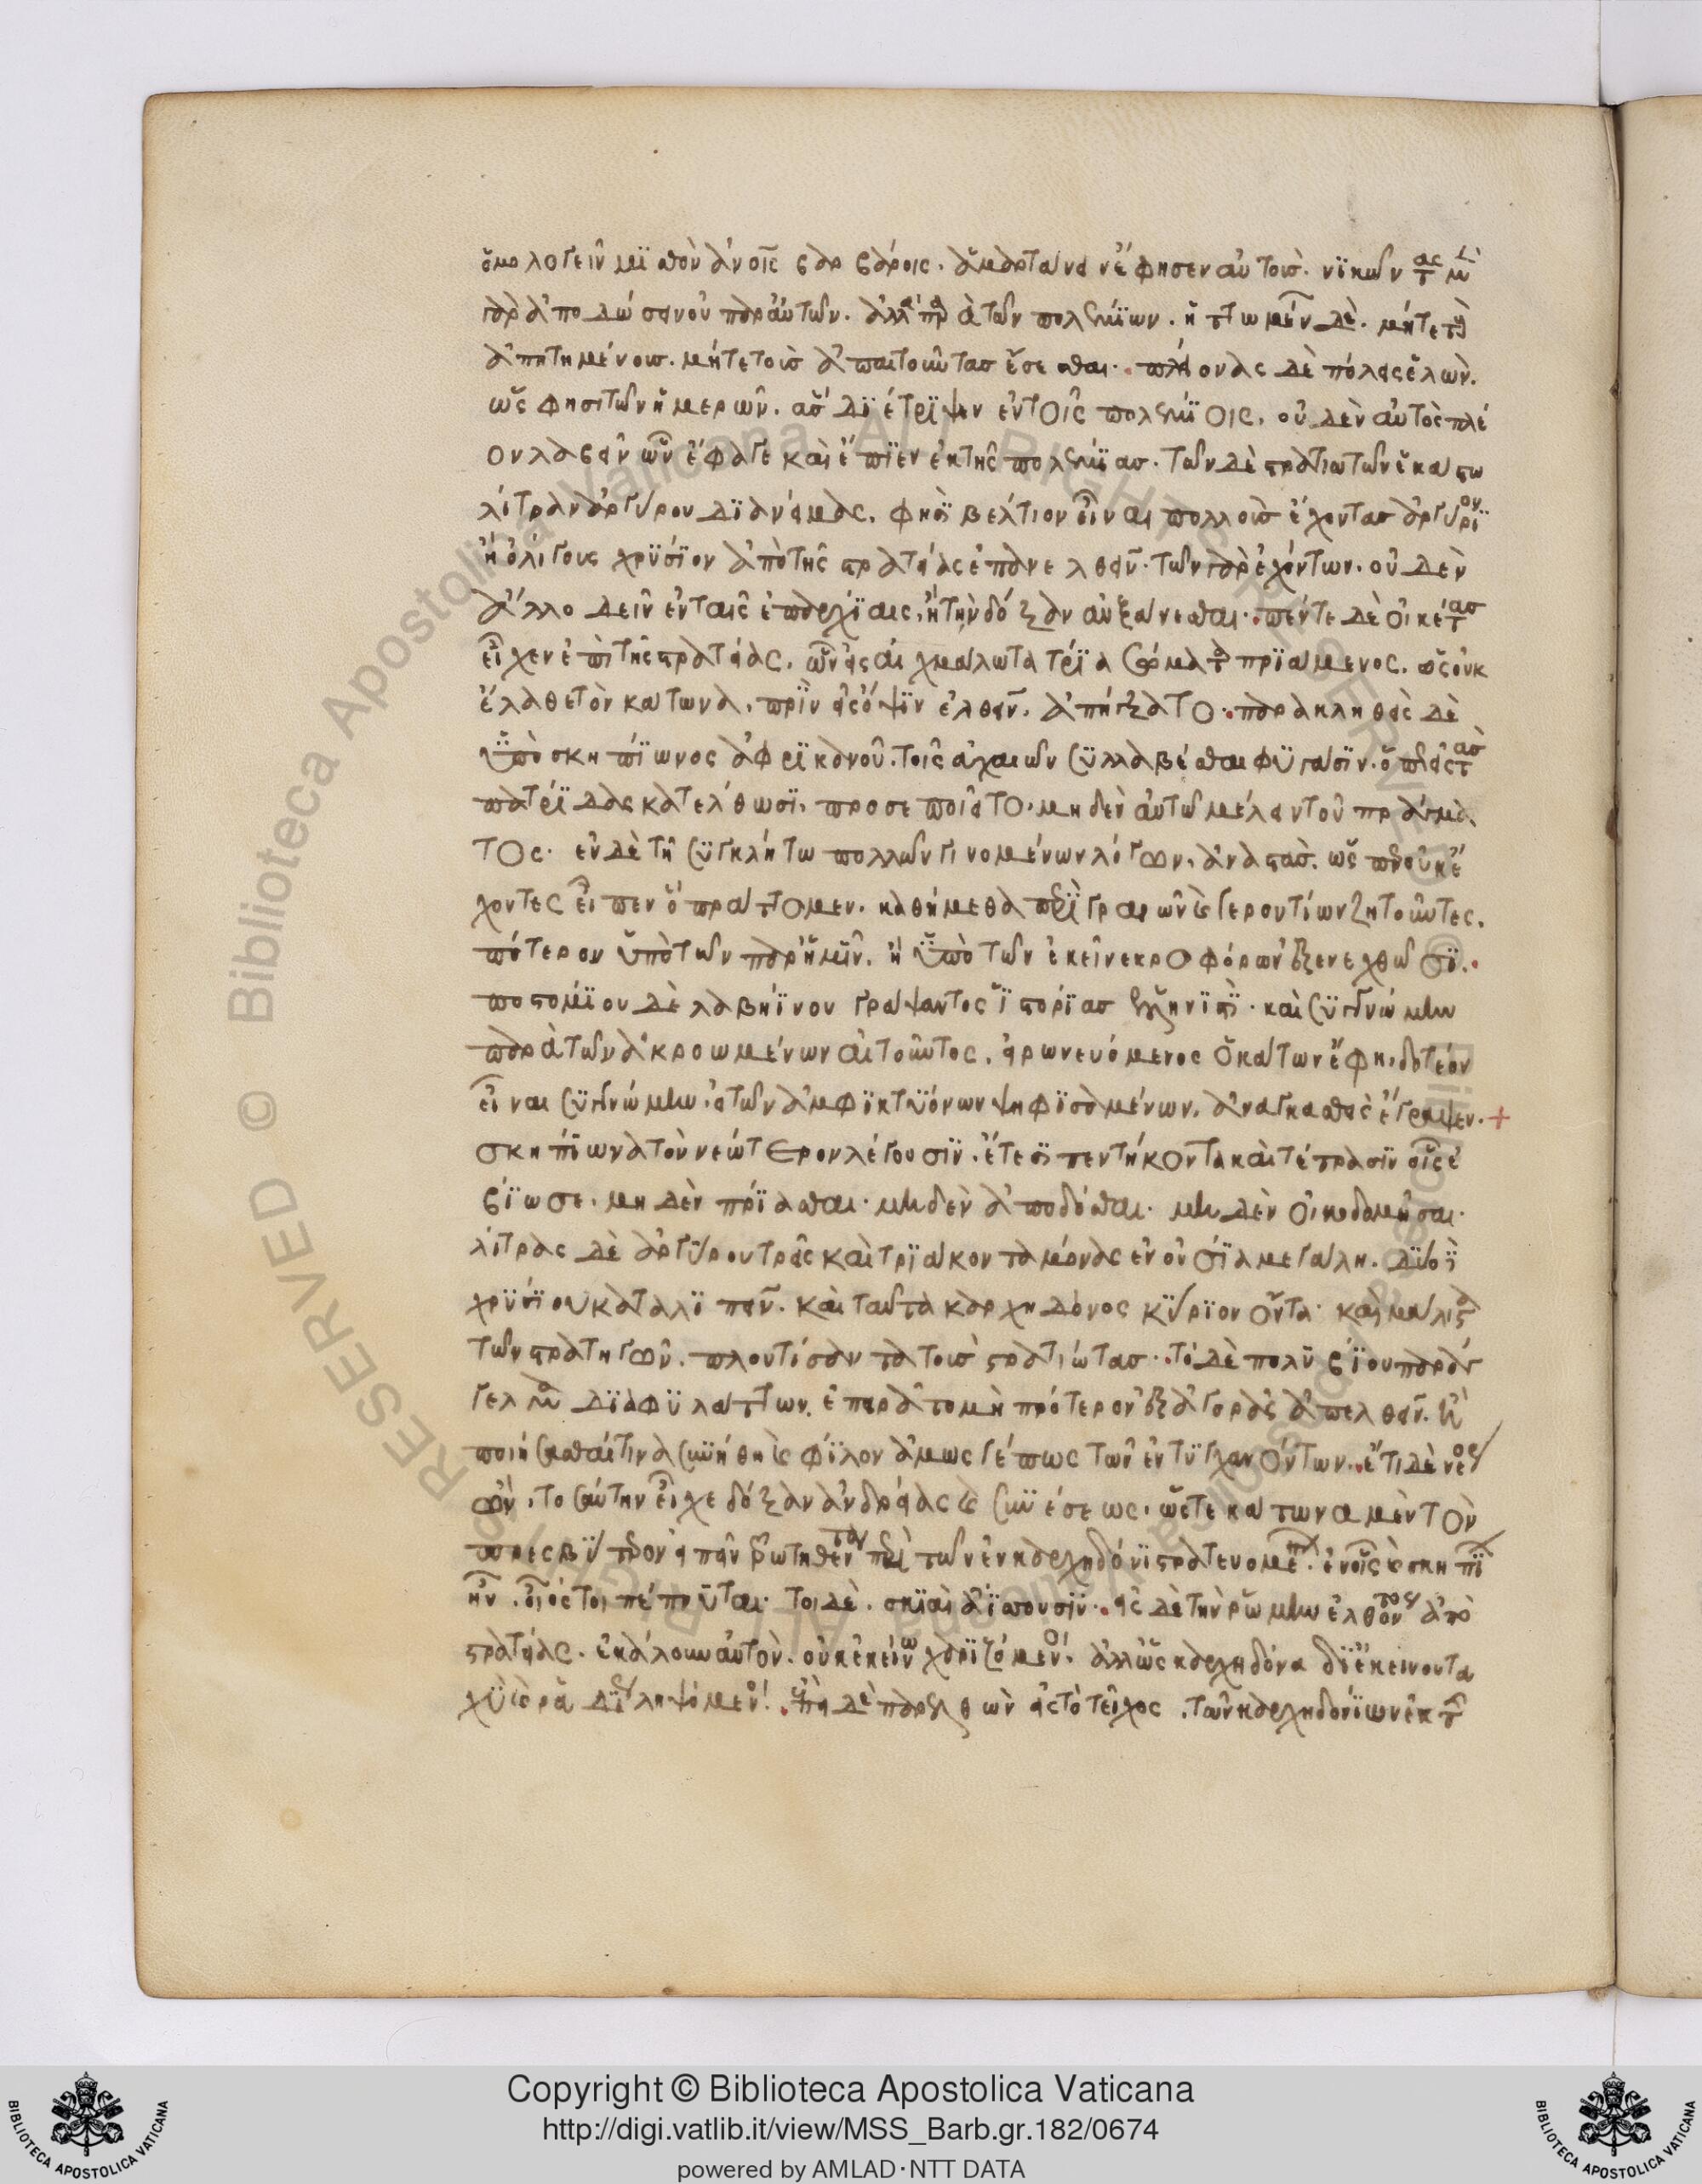 ὁμολογεῖν μισθὸν ἀνοῖς βαρβάροις. ἁμαρτάνειν ἔφησεν αὐτοῖς. νικῶντας μὲν
γὰρ ἀποδώσειν οὐ παρ' αὐτῶν. ἀλλὰ παρὰ τῶν πολεμίων. ἡττωμένων δὲ. μήτε τοὺς
ἀπητημένους. μήτε τοὺς ἀπαιτοῦντας ἔσεσθαι. πλείονας δὲ πόλεις ἑλὼν.
ὥς φησι τῶν ἡμερῶν. ἃς διέτριψεν ἐν τοῖς πολεμίοις, οὐδὲν αὐτὸς πλέ
ον λαβεῖν ὧν ἔφαγε καὶ ἔπιεν ἐκ τῆς πολεμίας. τῶν δὲ στρατιωτῶν ἑκάστω
λίτραν ἀργύρου διανείμας. φησὶ βέλτιον εἶναι πολλοὺς ἔχοντας ἀργύριον
ἢ ὀλίγους χρυσίον ἀπὸ τῆς στρατείας ἐπανελθεῖν. τῶν γὰρ ἐχόντων. οὐδὲν
ἄλλο δεῖν ἐν ταῖς ἐπαρχίαις, ἢ τὴν δόξαν αὐξάνεσθαι. πέντε δὲ οἰκέτας
εἶχεν ἐπὶ τῆς στρατείας. ὧν εἷς αἰχμάλωτα τρία σώματα πριάμενος. ὡς οὐκ
ἔλαθε τὸν κάτωνα, πρὶν εἰς ὄψιν ἐλθεῖν. ἀπήγξατο. παρακληθεὶς δὲ
ὑπὸ σκηπίωνος ἀφρικανοῦ. τοῖς ἀχαιῶν συλλαβέσθαι φυγάσιν. ὅπως εἰς τὰς
πατρίδας κατέλθωσι, προσεποιεῖτο, μηδὲν αὐτῶ μέλειν τοῦ πράγμα
τος. ἐν δὲ τῆ συγκλήτω πολλῶν γινομένων λόγων, ἀναστὰς. ὥσπερ οὐκ ἔ
χοντες εἶπεν ὃ πράττομεν. καθήμεθα περὶ γραικῶν γεροντίων ζητοῦντες.
πότερον ὑπὸ τῶν παρ' ἡμῖν. ἢ ὑπὸ τῶν ἐκεῖ νεκροφόρων ἐξενεχθῶσι.
ποστομίου δὲ λαβηίνου γράψαντος ἱστορίας ἑλληνιστὶ. καὶ συγγνώμην
παρὰ τῶν ἀκροωμένων αἰτοῦντος, εἰρωνευόμενος ὁ κάτων ἔφη, δοτέον
εἶναι συγγνώμην. εἰ τῶν ἀμφικτυόνων ψηφισαμένων. ἀναγκασθεὶς ἔγραψεν. +
σκηπίωνα τὸν νεώτερον λέγουσιν. ἔτεσι πεντήκοντα καὶ τέτρασιν οἷς ἐ
βίωσε. μηδὲν πρίασθαι. μηδὲν ἀποδόσθαι. μηδὲν οἰκοδομῆσαι.
λίτρας δὲ ἀργύρου τρεῖς καὶ τριάκοντα μόνας ἐν οὐσία μεγάλη. δύο
χρυσίου καταλιπεῖν. καὶ ταῦτα καρχηδόνος κύριον ὄντα. καὶ μάλιστα
τῶν στρατηγῶν. πλουτίσαντα τοὺς στρατιώτας. τὸ δὲ πολυβίου παράγ
γελμα διαφυλάττων. ἐπειρᾶτο μὴ πρότερον ἐξ ἀγορᾶς ἀπελθεῖν. ἢ
ποιήσασθαί τινα συνήθη καὶ φίλον ἁμῶς γέ πως τῶν ἐντυγχανόντων. ἔτι δὲ νέος
ὢν, τοσαύτην εἶχε δόξαν ἀνδρείας καὶ συνέσεως, ὥστε κάτωνα μὲν τὸν
πρεσβύτερον εἰπεῖν ἐρωτηθέντα περὶ τῶν ἐν καρχηδόνι στρατευομένων. ἐν οἷς καὶ σκηπίων
ἦν. οἷος τοι πέπνυται. τοὶ δὲ. σκιαὶ ἀΐσσουσιν. εἰς δὲ τὴν ῥώμην ἐλθόντος ἀπὸ
στρατείας. ἐκάλουν αὐτὸν. οὐκ ἐκείνω χαριζόμενοι. ἀλλ' ὡς καρχηδόνα δι' ἐκείνου τα
χὺ καὶ ῥαδίως ληψόμενοι. ἐπεὶ δὲ παρελθὼν εἰς τὸ τεῖχος. τῶν καρχηδονίων ἐκ τῆς